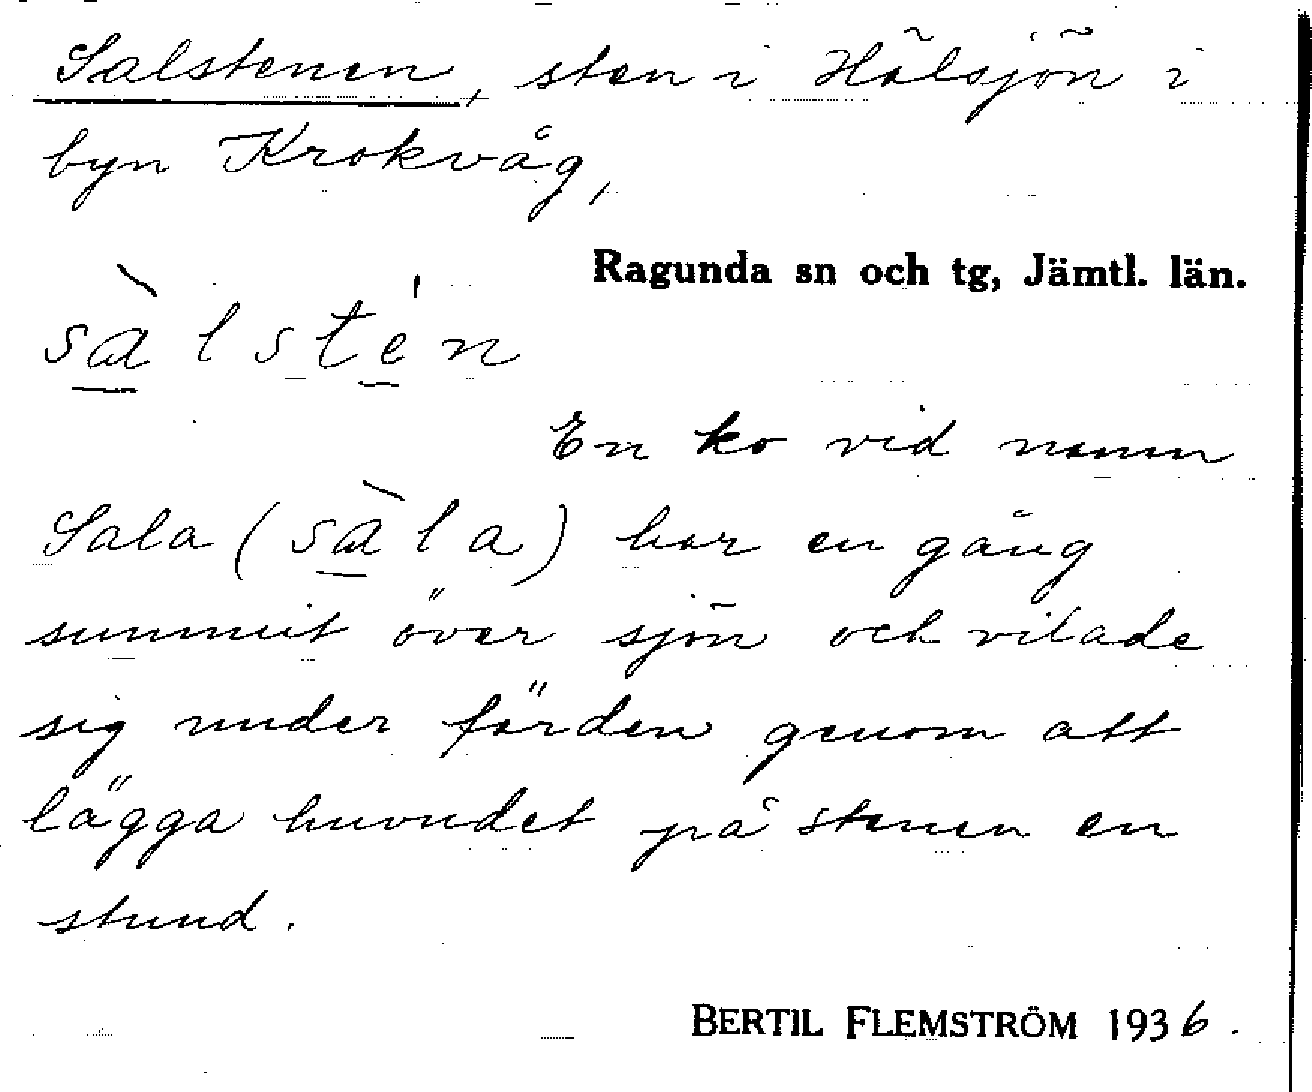 Salstenen, sten i Hålsjön i
byn Krokvåg,
Ragunda sn och tg, Jämtl. län.
sàlstén
En ko vid namn
Sala (sàla) har en gång
summit över sjön och vilade
sig under färden genom att
lägga huvudet på stenen en
stund.
BERTIL FLEMSTRÖM 1936.